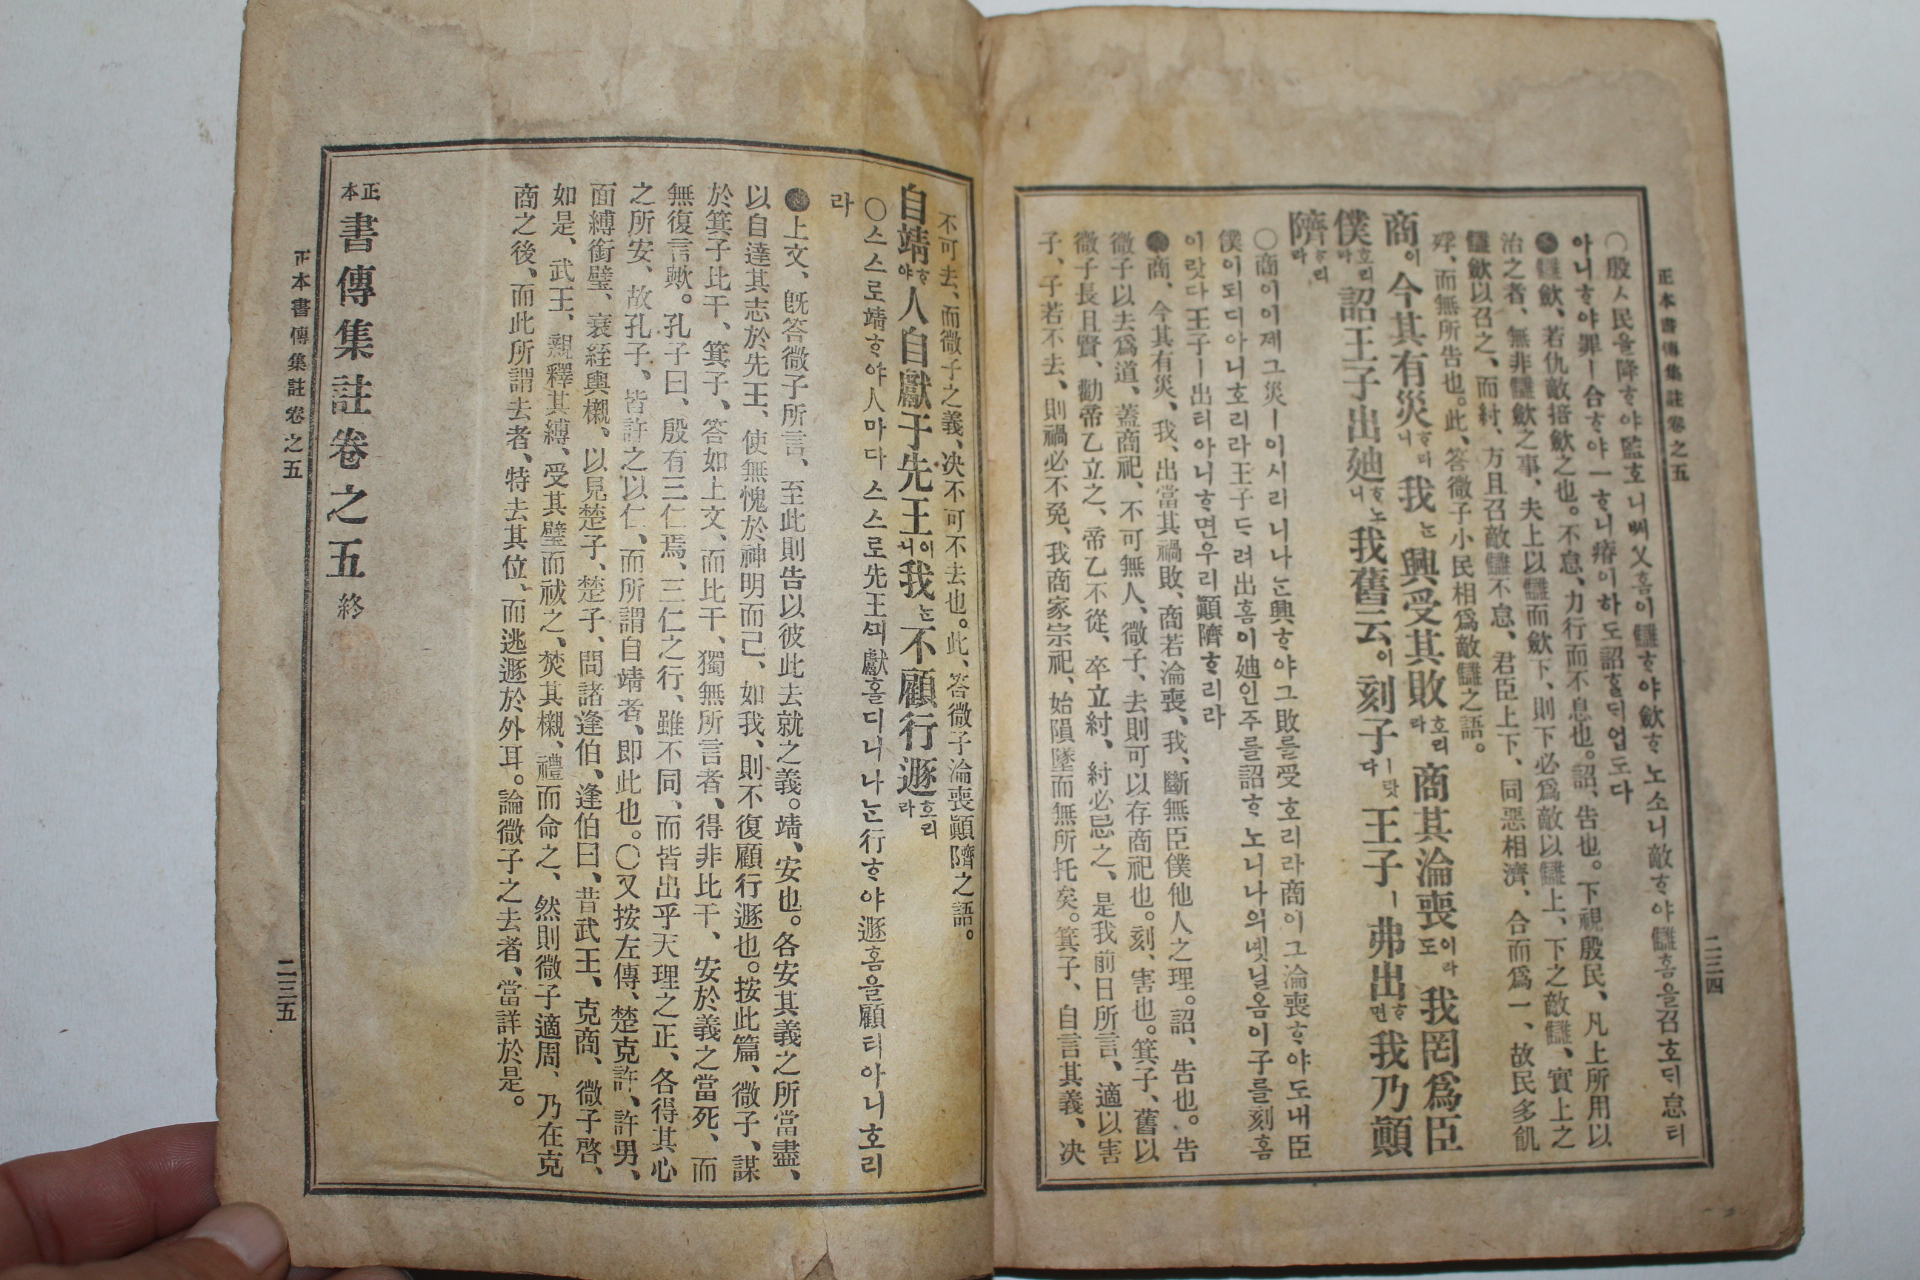 正本書傳集註卷之五
二三四
○殷ㅅ民을降ᄒᆞ야監호니ᄡᅥ乂홈이讎ᄒᆞ야歛ᄒᆞ노소니敵ᄒᆞ야讎홈을召호ᄃᆡ怠티
아니ᄒᆞ야罪ㅣ合ᄒᆞ야一ᄒᆞ니瘠이하도詔ᄒᆞᆯᄃᆡ업도다
讎歛、若仇敵掊歛之也。不怠、力行而不息也。詔、告也。下視殷民、凡上所用以
治之者、無非讎歛之事、夫上以讎而歛下、則下必爲敵以讎上、下之敵讎、實上之
讎歛以召之、而紂、方且召敵讎不怠、君臣上下、同惡相濟、合而爲一、故民多飢
殍、而無所告也。此、答微子小民相爲敵讎之語。
商이今其有災ᄒᆞ리니我ᄂᆞᆫ興受其敗호리라商其淪喪이라도我罔爲臣
僕호리라詔王子出廸ᄒᆞ노니我舊云이刻子ㅣ랏다王子ㅣ弗出ᄒᆞ면我乃顚
隮ᄒᆞ리라
○商이이제그災ㅣ이시리니나ᄂᆞᆫ興ᄒᆞ야그敗를受호리라商이그淪喪ᄒᆞ야도내臣
僕이되디아니호리라王子ᄃᆞ려出홈이廸인주를詔ᄒᆞ노니나의녯닐옴이子를刻홈
이랏다王子ㅣ出티아니ᄒᆞ면우리顚隮ᄒᆞ리라
商、今其有災、我、出當其禍敗、商若淪喪、我、斷無臣僕他人之理。詔、告也。告
微子以去爲道、蓋商祀、不可無人、微子、去則可以存商祀也。刻、害也。箕子、舊以
微子長且賢、勸帝乙立之、帝乙不從、卒立紂、紂必忌之、是我前日所言、適以害
子、子若不去、則禍必不免、我商家宗祀、始隕墜而無所托矣。箕子、自言其義、决
不可去、而微子之義、决不可不去也。此、答微子淪喪顚隮之語。
自靖ᄒᆞ야人自獻于先王이니我ᄂᆞᆫ不顧行遯호리라
○스스로靖ᄒᆞ야人마다스스로先王ᄭᅴ獻홀디니나ᄂᆞᆫ行ᄒᆞ야遯홈을顧티아니호리
라
上文、旣答微子所言、至此則告以彼此去就之義。靖、安也。各安其義之所當盡、
以自達其志於先王、使無愧於神明而已、如我、則不復顧行遯也。按此篇、微子、謀
於箕子比干、箕子、答如上文、而比干、獨無所言者、得非比干、安於義之當死、而
無復言歟。孔子曰、殷有三仁焉、三仁之行、雖不同、而皆出乎天理之正、各得其心
之所安、故孔子、皆許之以仁、而所謂自靖者、即此也。○又按左傳、楚克許、許男、
面縛銜璧、衰絰輿櫬、以見楚子、楚子、問諸逢伯、逢伯曰、昔武王、克商、微子啓、
如是、武王、親釋其縛、受其璧而祓之、焚其櫬、禮而命之、然則微子適周、乃在克
商之後、而此所謂去者、特去其位、而逃遯於外耳。論微子之去者、當詳於是。
正本 書傳集註卷之五 終
正本書傳集註卷之五
二三五